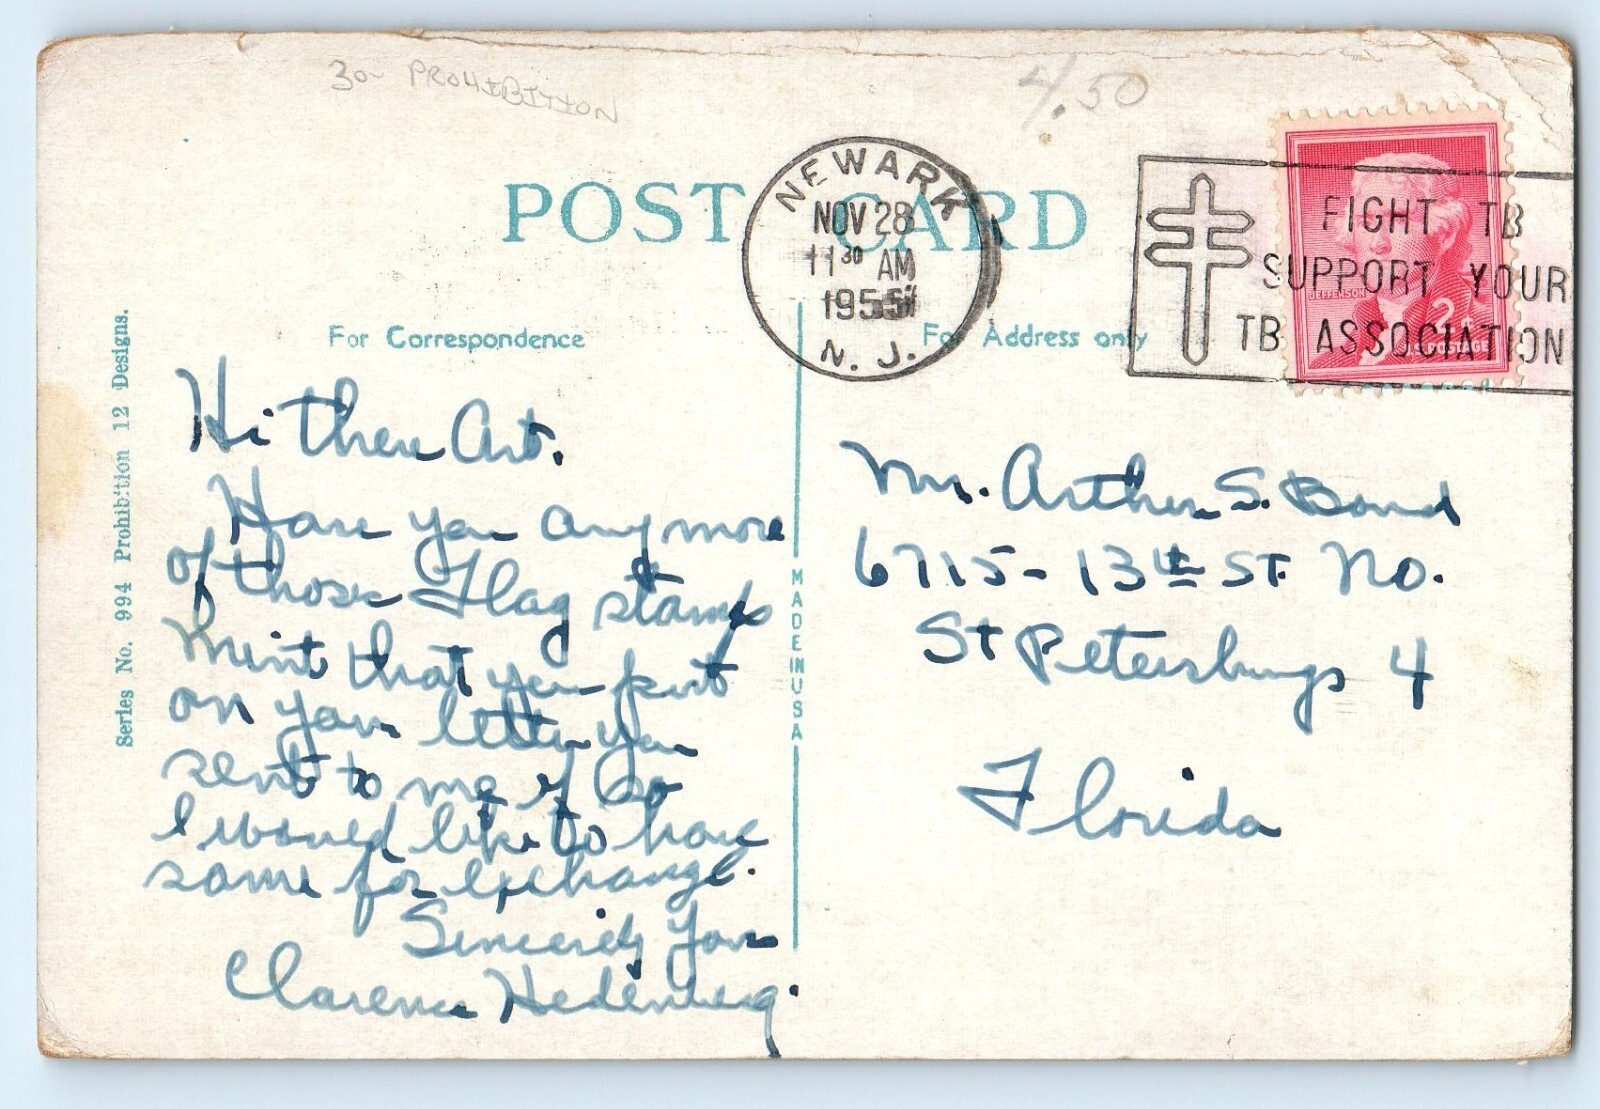 30- PROHIBITION
4.50
POST CARD
NEWARK
NOV 28
11 30 AM
1955
N. J.
FIGHT TB
SUPPORT YOUR
TB ASSOCIATION
JEFFERSON
2¢
U.S. POSTAGE
For Correspondence
For Address only
Series No. 994 Prohibition 12 Designs.
MADE IN USA
Hi There Art.
Have you any more
of those Flag stamps
Mint that you put
on your letter you
sent to me if so
I would like to have
some for exchange.
Sincerely Yours
Clarence
Mr. Arthur S. Bond
6715 - 13th St. No.
St Petersburgs 4
Florida